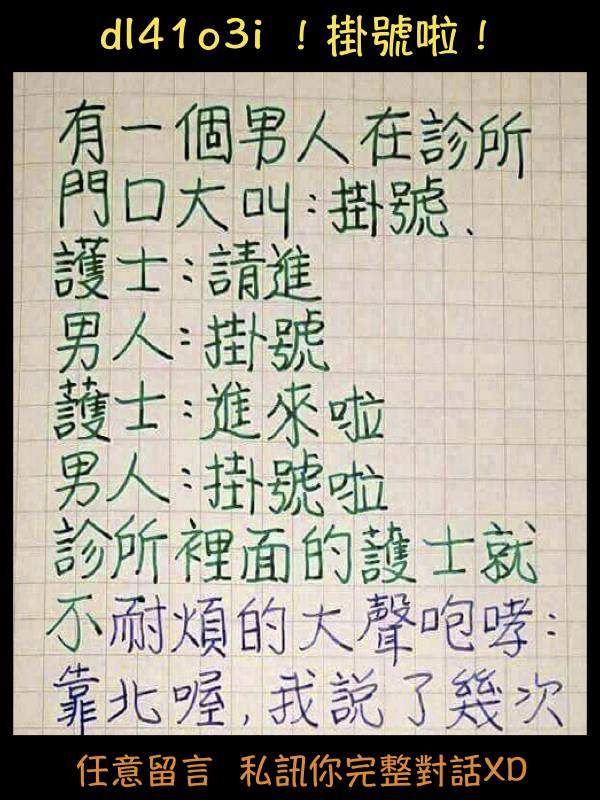 dl41o3i ！掛號啦！
有一個男人在診所
門口大叫：掛號、
護士：請進
男人：掛號
護士：進來啦
男人：掛號啦
診所裡面的護士就
不耐煩的大聲咆哮：
靠北喔，我說了幾次
任意留言 私訊你完整對話XD